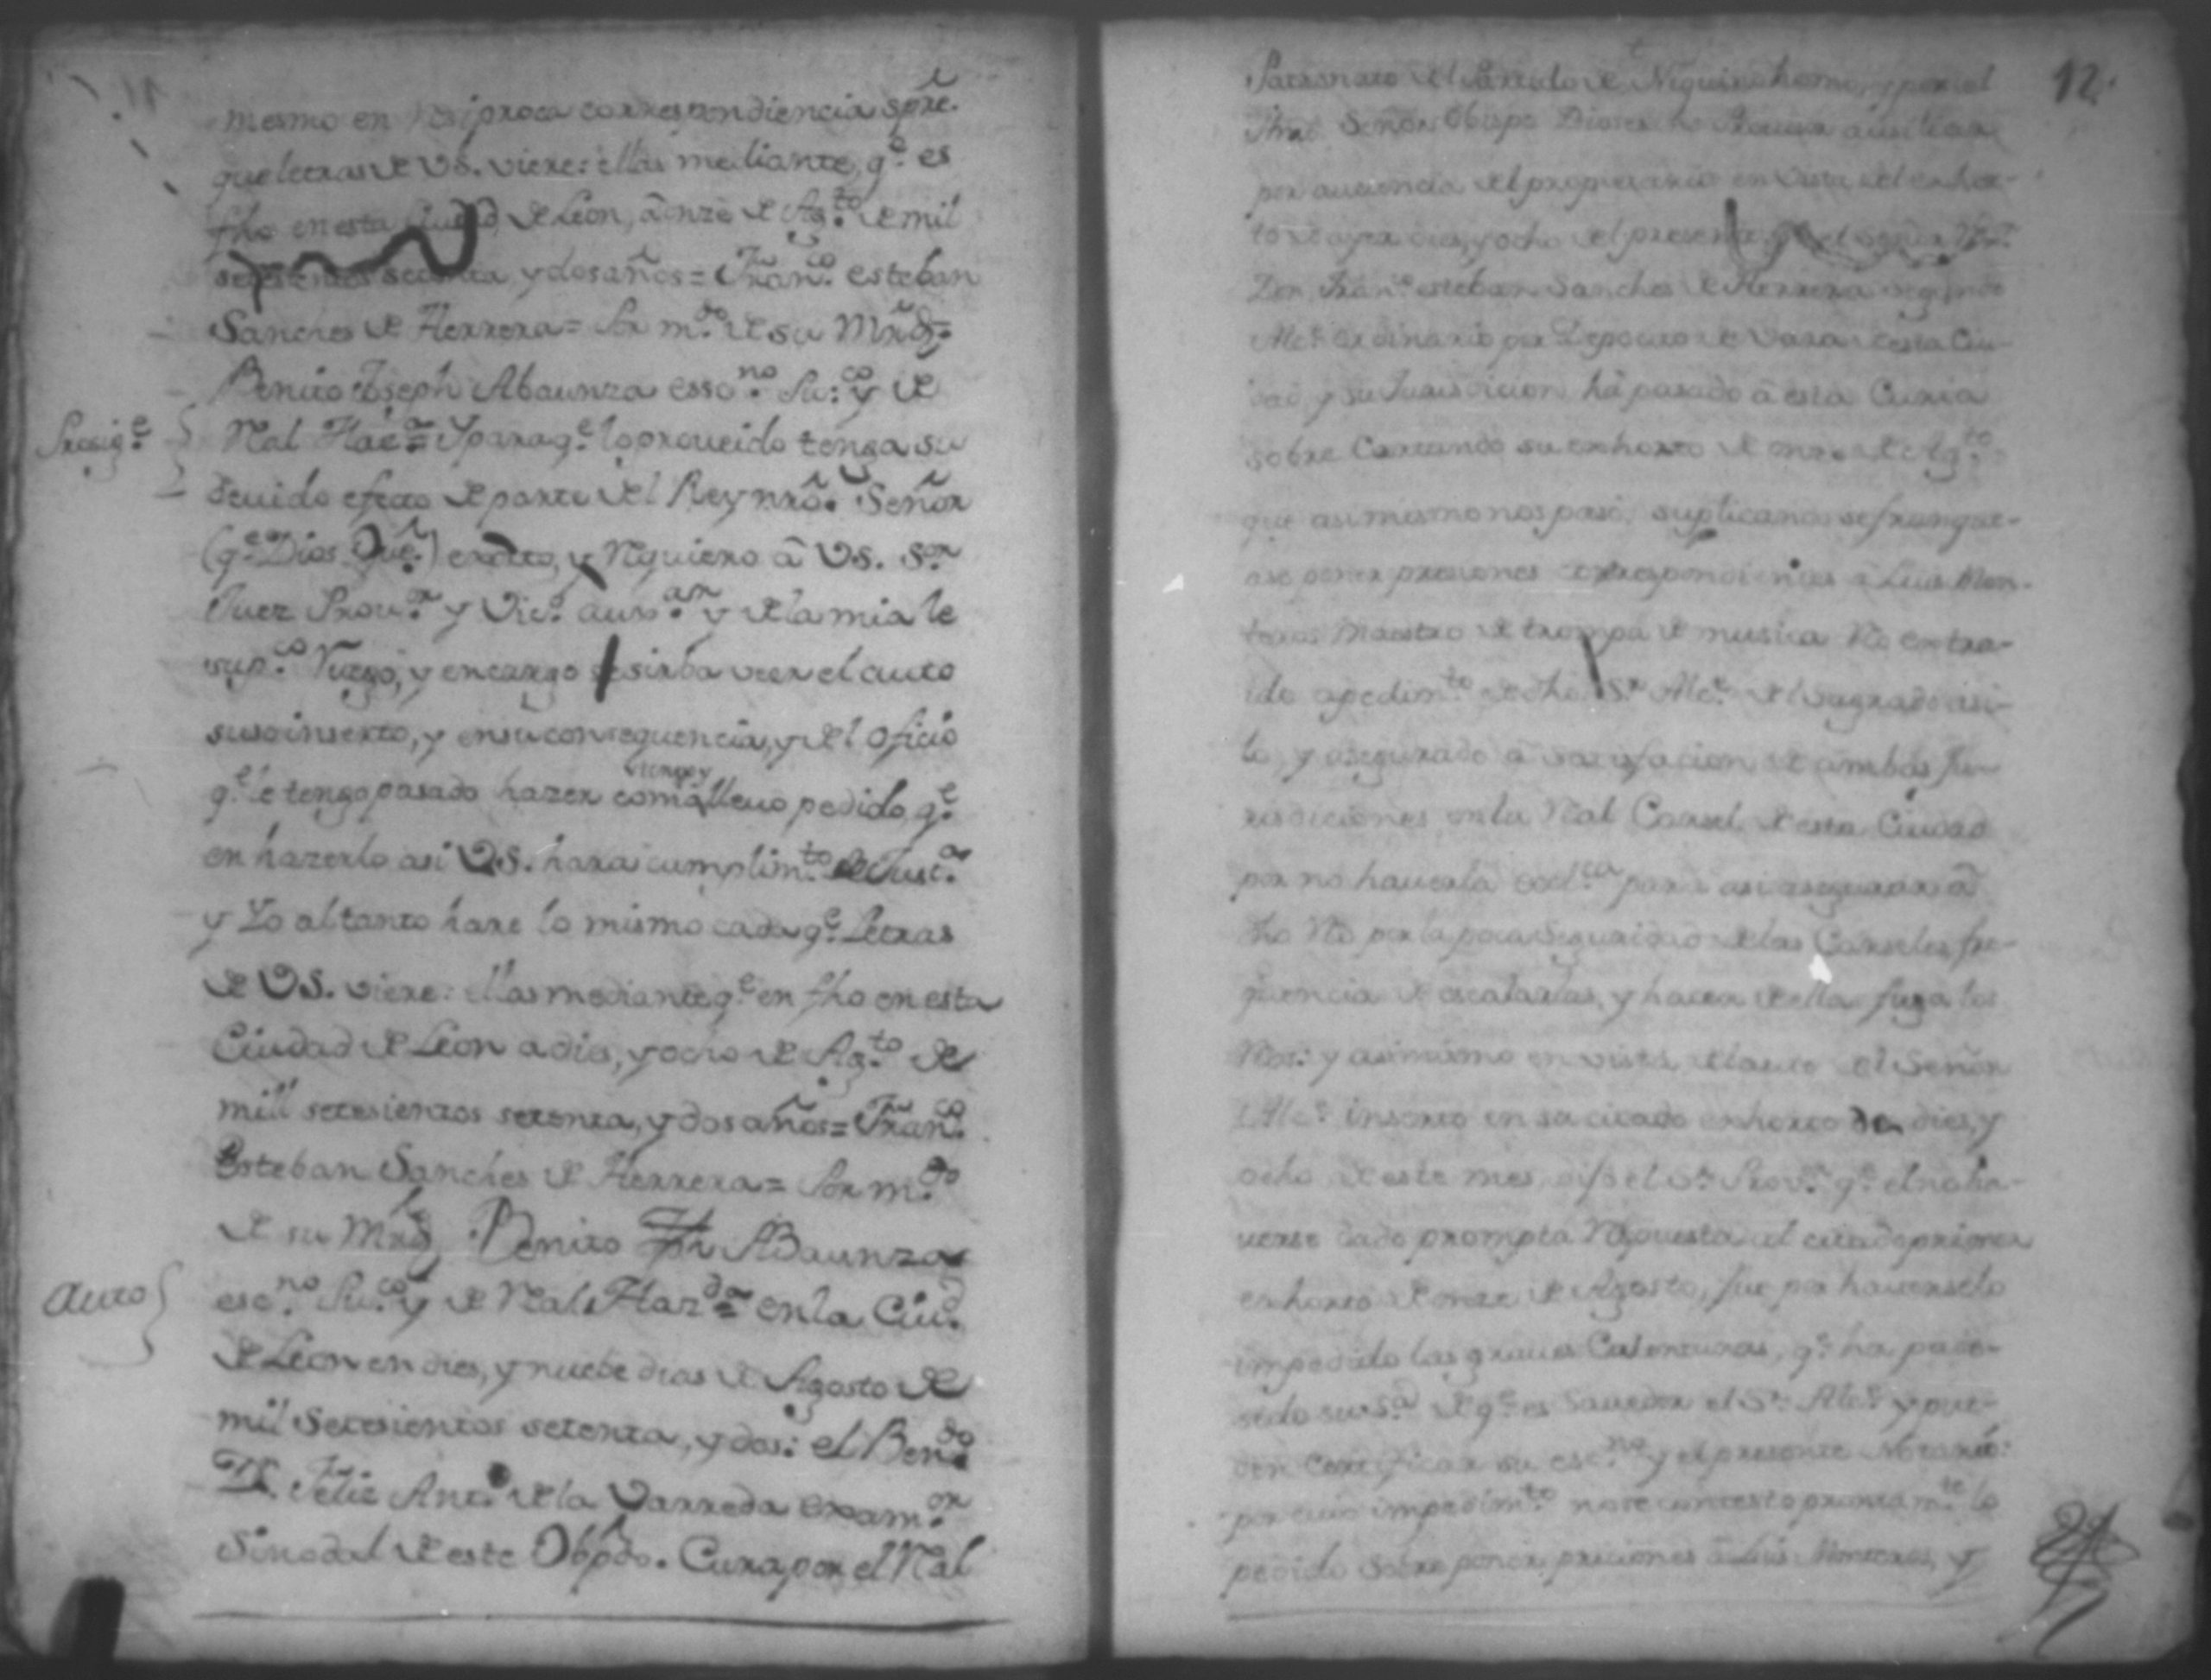 mesmo en resiproca correspondiencia spre.
que letras de VS. viere: ellas mediante, q.e es
fho en esta Ciudad de Leon, â onze de Ag.to de mil
setesientos setenta y dos años = Fran.co esteban
Sanches de Herrera = Por m.do de su Mrd =
Benito Joseph Abaunza esso.no Pu.co y de
Prosig.e
Real Hac.a = Y para q.e lo proueido tenga su
deuido efecto de parte del Rey nrô. Señor
(q.e Dios Gue.) exorto, y Requiero â VS. S.or
Juez Prou.or y Vic.o aux.ar y de la mia le
sup.co Ruego, y encargo se sirba veer el auto
suso inserto, y en su consequencia, y del oficio
q.e le tengo pasado hazer como lleuo pedido, q.e
en hazerlo asi VS. hara cumplim.to de Just.a
y Yo al tanto hare lo mismo cada q.e Letras
de VS. viere: ellas mediante q.e en fho en esta
Ciudad de Leon a dies, y ocho de Ag.to de
mill setesientos setenta, y dos años = Fran.co
Esteban Sanches de Herrera = Por m.do
de su Mrd Benito Jph Abaunza
Auto
esc.no Pu.co y de Real Haz.da = en la Ciu.d
de Leon en dies, y nuebe dias de Agosto de
mil Setesientos setenta, y dos: el Ben.do
D. Felie Ant.o de la Varreda exam.or
Sinodal de este Obpdo. Cura por el Real
12.
Patronato del Partido de Niquinohomo, y por el
Señor Obispo Dioses.no Prouisor ausiliar
por ausencia del propietario en vista del exhor-
to de dies, y ocho del presente q.e el señor
Don Fran.co esteban Sanches de Herrera segundo
Alc.e ordinario por Deposito de Vara de esta Ciu-
dad y su Jurisdicion hâ pasado â esta Curia
sobre Cartando su exhorto de onze de Ag.to
que asimismo nos pasó, suplicando se franque-
ase poner prisiones correspondientes â Luis Mon-
teros Maestro de trompa de musica Reo extra-
ido a pedim.to de dho S.r Alc.e del sagrado asi-
lo, y asegurado â satisfacion de ambas Ju-
risdiciones en la Real Carsel de esta Ciudad
por no hauerla ecl.ca para asi asegurar â
dho Reo por la poca Seguridad de las Carseles, fre-
quencia de escalarlas, y hacer de ella fuga los
Reos: y asimismo en vista del auto del Señor
Alc.e inserto en su citado exhorto de dies, y
ocho de este mes, dijo el S.r Prov.r q.e el no ha-
uerse dado prompta Respuesta al citado primer
exhorto de onze de Agosto, fue por hauerselo
impedido las graues Calenturas, q.e ha pade-
sido su S.a de q.e es sauedor el S.r Alc.e y pue-
den Certificar su esc.no y el presente Notario:
por cuio impedim.to no se contesto prontam.te lo
pedido sobre poner prisiones â Luis Monteros, y